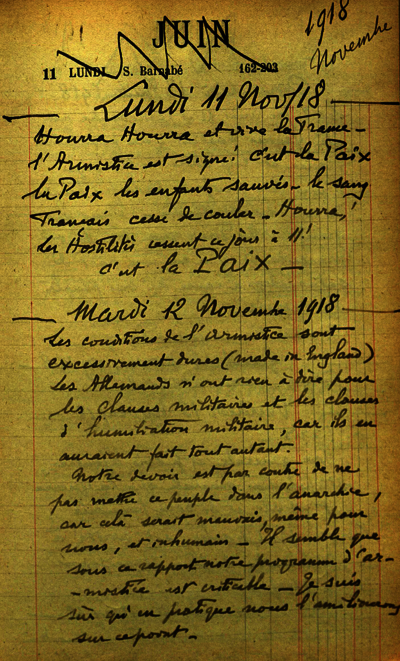 JUIN
1918
Novembre
11 LUNDI S. Barnabé 162-203
Lundi 11 Nov/18
Hourra Hourra et vive la France -
l'Armistice est signé! c'est la Paix
la Paix les enfants sauvés - le sang
Français cesse de couler - Hourra!
Les Hostilités cessent ce jour à 11!
c'est la Paix -
Mardi 12 Novembre 1918
Les conditions de l'armistice sont
excessivement dures (made in England)
Les Allemands n'ont rien à dire pour
les clauses militaires et les clauses
d'humiliation militaire, car ils en
auraient fait tout autant.
Notre devoir est par contre de ne
pas mettre ce peuple dans l'anarchie,
car celà serait mauvais, même pour
nous, et inhumain - Il semble que
sous ce rapport notre programme d'ar-
-mistice est criticable - Je suis
sûr qu'en pratique nous l'améliorerons
sur ce point -